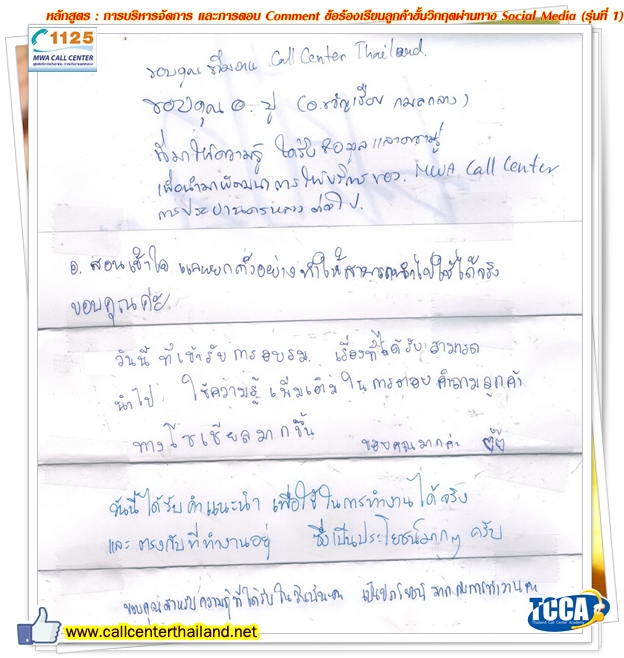 หลักสูตร : การบริหารจัดการ และการตอบ Comment ข้อร้องเรียนลูกค้าขั้นวิกฤตผ่านทาง Social Media (รุ่นที่ 1)
1125
MWA CALL CENTER
ขอบคุณ ทีมงาน Call Center Thailand.
ขอบคุณ อ. ปู (อ.ขวัญเรือน
ที่มาให้ความรู้ ได้รับข้อมูล และความรู้
เพื่อนำมาพัฒนา การให้บริการของ MWA Call Center
การประปานครหลวง ต่อไป.
อ. สอนเข้าใจ และยกตัวอย่าง ทำให้สามารถนำไปใช้ได้จริง
ขอบคุณค่ะ
วันนี้ ที่เข้ารับการอบรม. เรื่องที่ได้รับ สามารถ
นำไป ใช้ความรู้ เพิ่มเติม ในการตอบ คำถามลูกค้า
ทางโซเชียลมากขึ้น ขอบคุณมากค่ะ
วันนี้ได้รับคำแนะนำ เพื่อใช้ในการทำงานได้จริง
และ ตรงกับที่ทำงานอยู่ ซึ่งเป็นประโยชน์มากๆ ครับ
ขอบคุณสำหรับความรู้ที่ได้รับในวันนี้นะคะ เป็นประโยชน์ มากกับการทำงานค่ะ
www.callcenterthailand.net
TCCA
Thailand Call Center Academy